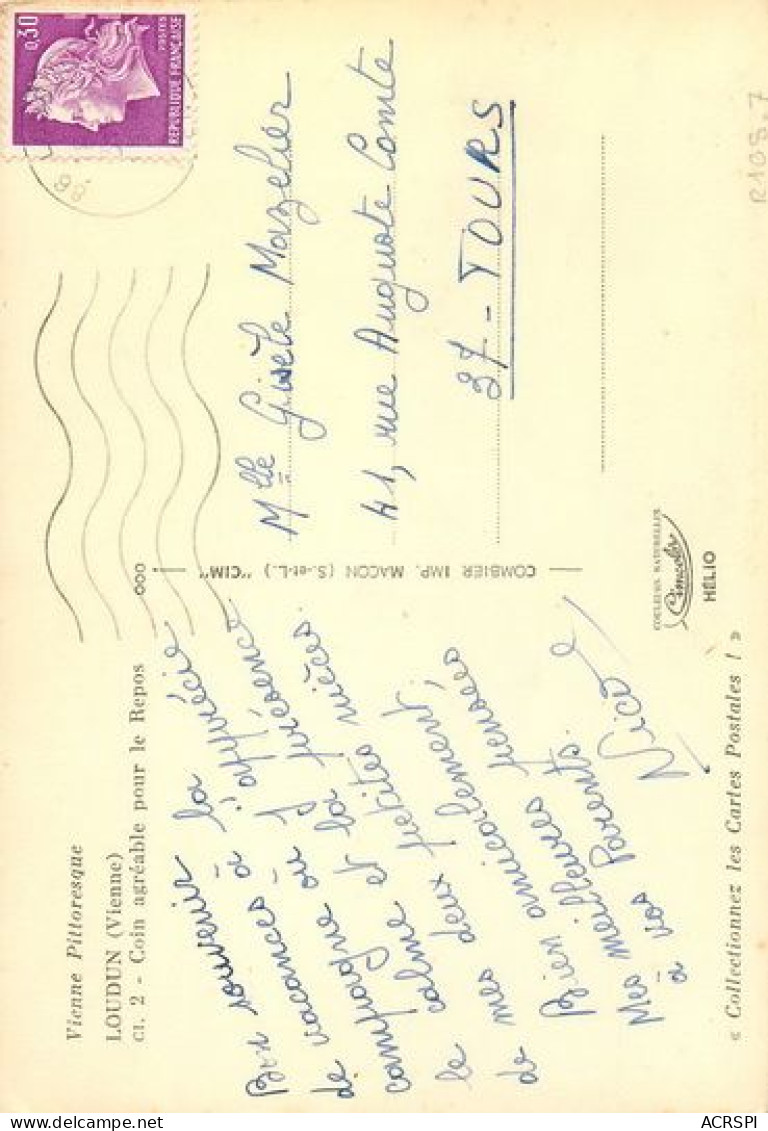 Vienne Pittoresque
LOUDUN (Vienne)
Cl. 2 - Coin agréable pour le Repos
Bon souvenir
de vacances à la
campagne où j'apprécie
le calme et la présence
de mes deux petites nièces.
Bien amicalement,
Mes meilleures pensées
à vos Parents.
Nicole
« Collectionnez les Cartes Postales ! »
COMBIER IMP. MACON (S.-et-L.) "CIM"
COULEURS NATURELLES
Cimcolor
HÉLIO
0,30
POSTES
REPUBLIQUE FRANÇAISE
Mlle Gisèle Mazelier
41, rue Auguste Comte
37 - TOURS
R108.7
ACRSPI